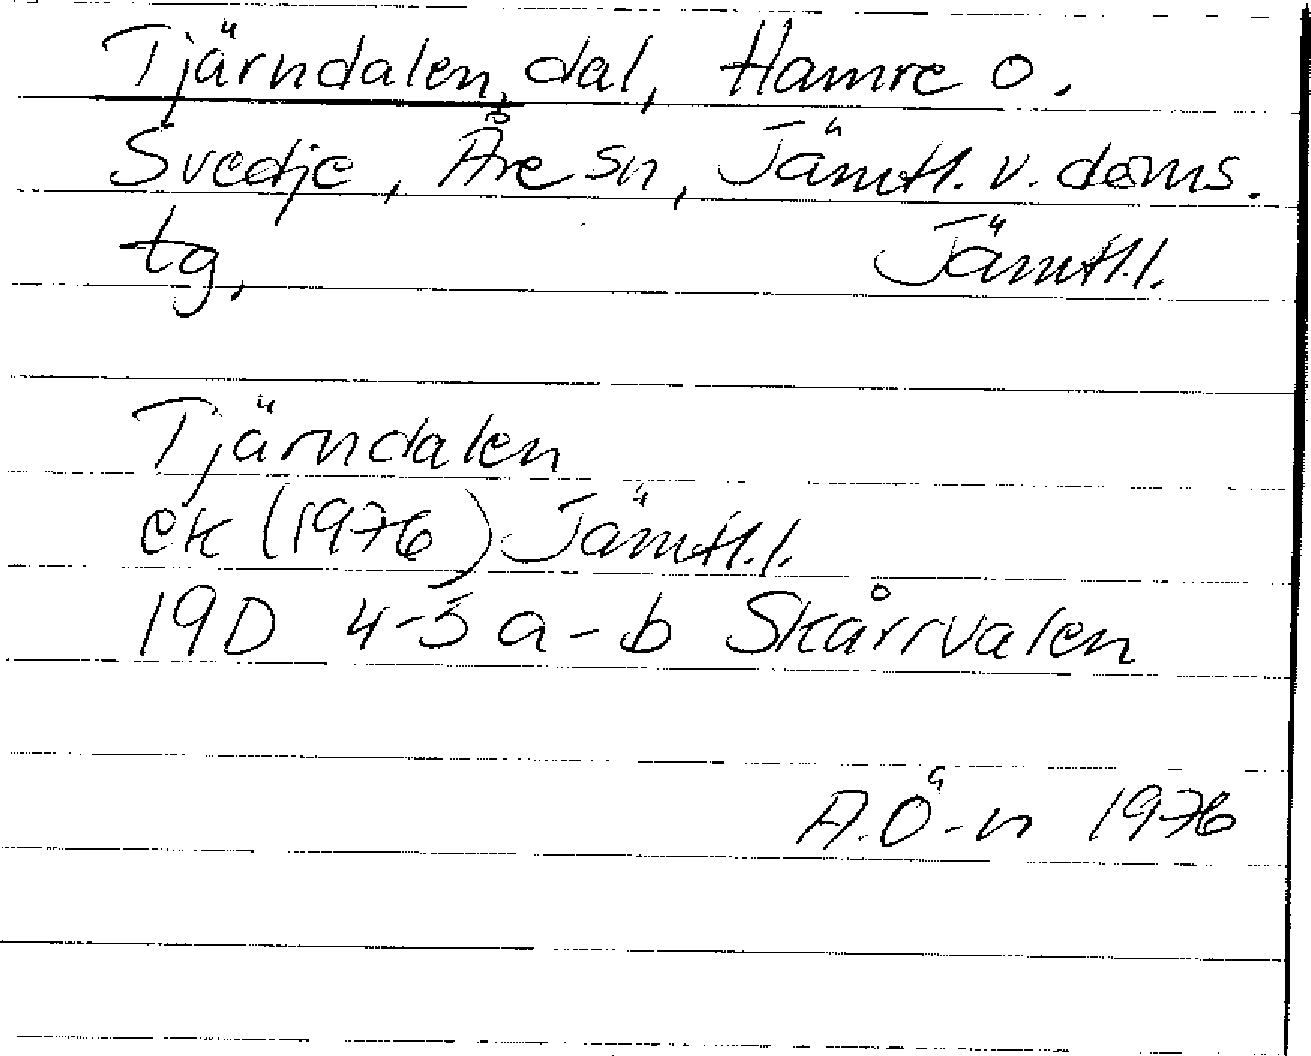 Tjärndalen, dal, Hamre o.
Svedje, Åre sn, Jämtl. v. doms.
tg. Jämtl.l.
Tjärndalen
ek (1976) Jämtl.l.
19D 4-5 a-b Skårrvalen
A.Ö-n 1976